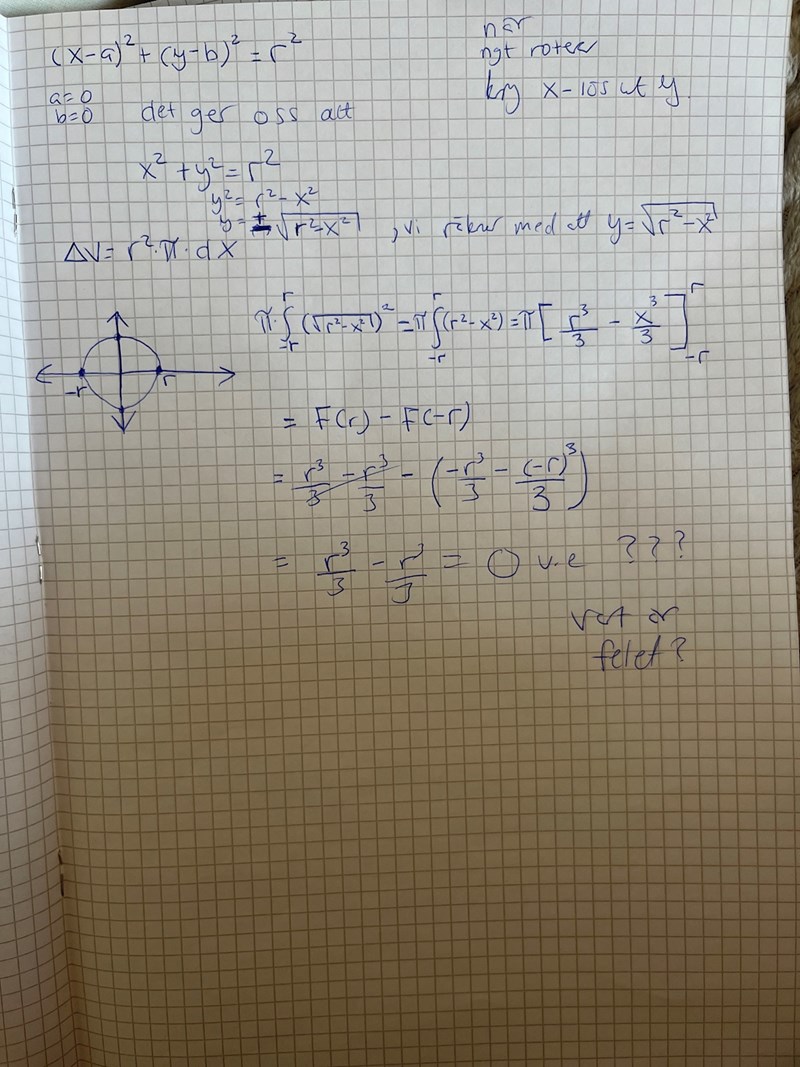 (x-a)² + (y-b)² = r²
när
ngt roterar
kring x-lös ut y.
a=0
b=0 det ger oss att
x² + y² = r²
y² = r² - x²
y = ±√(r²-x²) , vi räknar med att y = √(r²-x²)
ΔV = r²·π·dx
π·∫_{-r}^{r} (√(r²-x²))² = π∫_{-r}^{r} (r²-x²) = π[r³/3 - x³/3]_{-r}^{r}
-r r
= F(r) - F(-r)
= r³/3 - r³/3 - (-r³/3 - (-r)³/3)
= r³/3 - r³/3 = 0 v.e ???
vat är
felet?